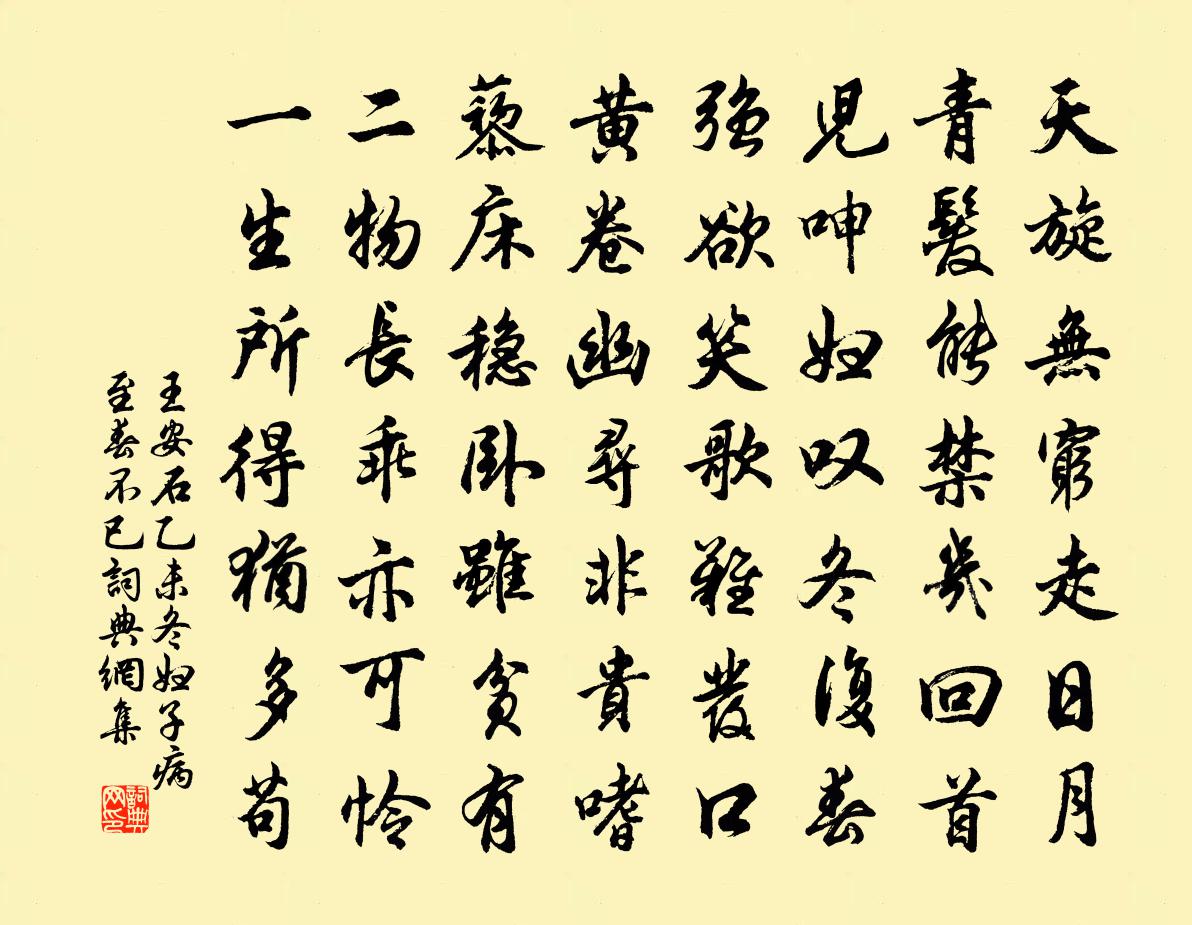 天旋無窮走日月
青髮能禁幾回首
兒呻婦叹冬復春
强欲笑歌難發口
黄卷幽尋非貴嗜
藜床稳卧雖貧有
二物長乖亦可怜
一生所得猶多苟
王安石乙未冬婦子病
至春不已詞典網集
詞典
网印